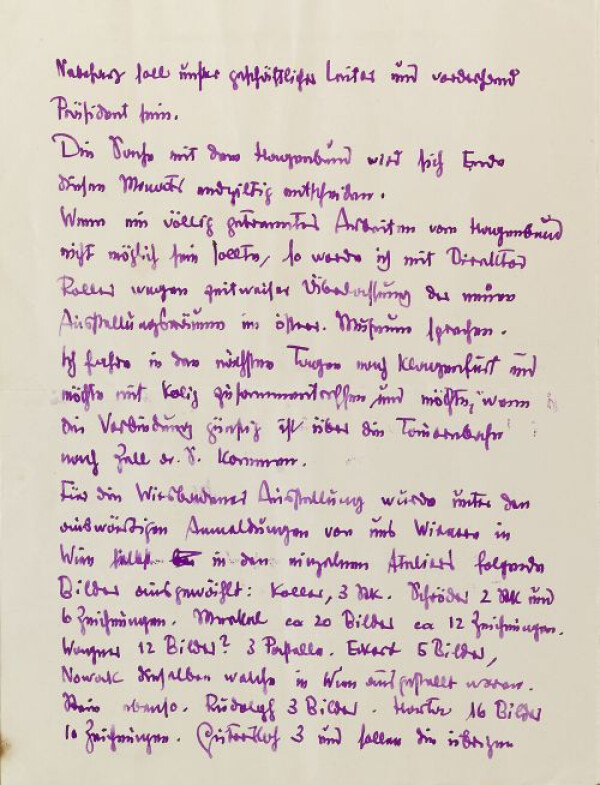 soll unser geschäftlicher Leiter und vorderhand
Präsident sein.
Die Sache mit dem Hagenbund wird sich Ende
dieses Monats endgiltig entscheiden.
Wenn ein völlig getrenntes Arbeiten vom Hagenbund
nicht möglich sein sollte, so werde ich mit Direktor
Roller wegen zeitweiser Überlassung der neuen
Ausstellungsräume im österr. Museum sprechen.
Ich fahre in den nächsten Tagen nach Klagenfurt und
möchte mit Kolig zusammentreffen und möchte, wenn
die Verbindung günstig ist über die Tauernbahn
nach Zell a. S. kommen.
Für die Wiesbadener Ausstellung wurde unter den
auswärtigen Anmeldungen von uns Wienern in
Wien selbst in den einzelnen Ateliers folgende
Bilder ausgewählt: Koller, 3 Stk. Schröder 2 Stk und
6 Zeichnungen. Merkel ca 20 Bilder ca 12 Zeichnungen.
Wagner 12 Bilder? 3 Pastelle. Eckert 5 Bilder,
Nowak dieselben welche in Wien ausgestellt waren.
ebenso. Rudolph 3 Bilder. Harta 16 Bilder
10 Zeichnungen. Gütersloh 3 und sollen die übrigen